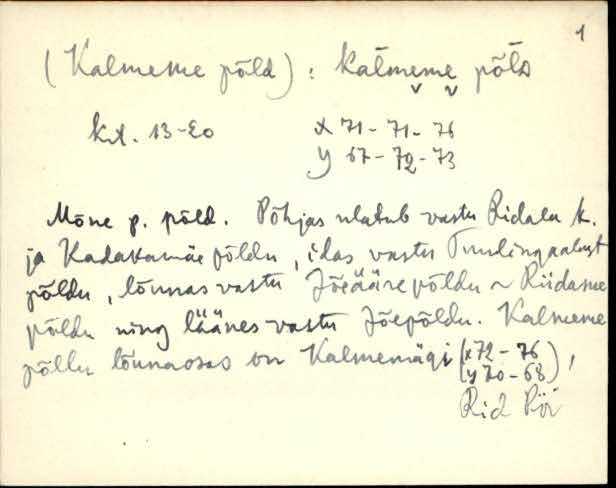 1
(Kalmeme põld) : kalmeme põls
kit. 13-20 x 71 - 71 - 76
y 67 - 72 - 73
Mõne p. põld. Põhjas ulatub vastu Ridala k.
ja Kadakamäe põldu, idas vastu Tuulingaalust
põldu, lõunas vastu Jõeääre põldu ~ Riidame
põldu ning läänes vastu Jõepõldu. Kalmeme
põllu lõunaosas on Kalmemägi (x 72 - 76
(y 70 - 68),
Rid Põi